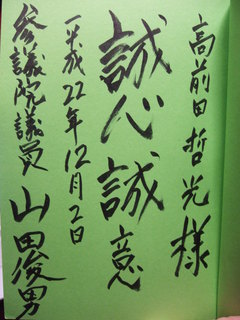 高前田哲光様
誠心誠意
平成22年12月2日
参議院議員 山田俊男